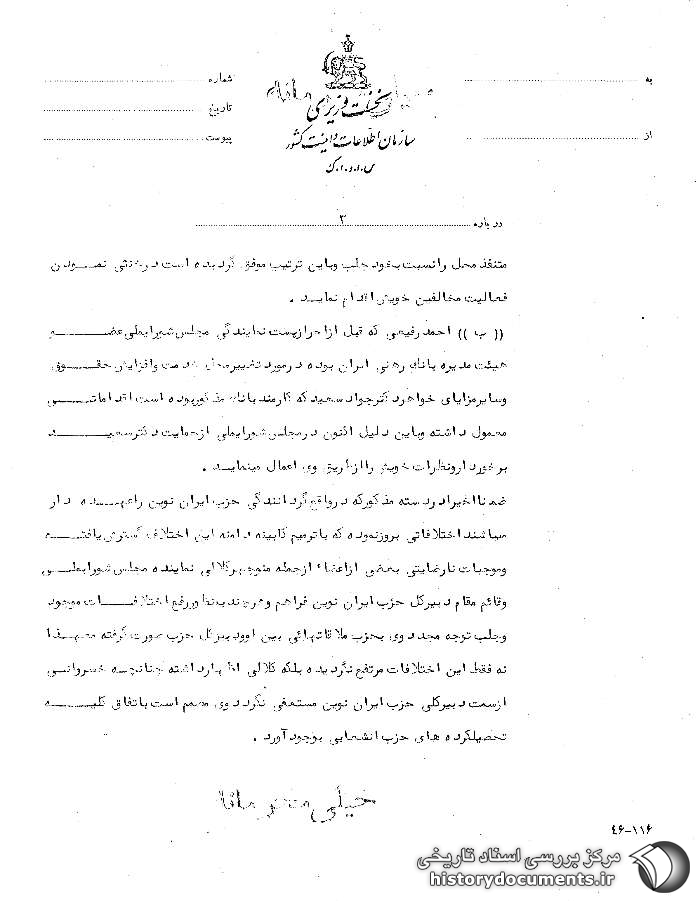 خیلی محرمانه
نخست وزیری
سازمان اطلاعات و امنیت کشور
س.ا.و.ا.ک
به
از
شماره
تاریخ
پیوست
درباره ۳
متنفذ محل را نسبت بخود جلب و باین ترتیب موفق گردیده است در خنثی نمودن
فعالیت مخالفین خویش اقدام نماید .
(( ب )) احمد رفیعی که قبل از احراز پست نمایندگی مجلس شورایملی عضو
هیئت مدیره بانک رهنی ایران بوده در مورد تغییر محل خدمت و افزایش حقوق
و سایر مزایای خواهر دکتر جواد سعید که کارمند بانک مذکور بوده است اقداماتی
معمول داشته و باین دلیل اکنون در مجلس شورایملی از حمایت دکتر سعید
برخوردار و نظرات خویش را از طریق وی اعمال مینماید .
ضمنا اخیرا در دسته مذکور که در واقع گردانندگی حزب ایران نوین را عهده دار
میباشند اختلافاتی بروز نموده که با ترمیم کابینه دامنه این اختلاف گسترش یافته
و موجبات نارضایتی بعضی از اعضاء از جمله منوچهر کلالی نماینده مجلس شورایملی
و قائم مقام دبیرکل حزب ایران نوین فراهم و هرچند بمنظور رفع اختلافات موجود
و جلب توجه مجدد وی بحزب ملاقاتهائی بین او و دبیرکل حزب صورت گرفته معهذا
نه فقط این اختلافات مرتفع نگردیده بلکه کلالی اظهار داشته چنانچه خسروانی
از سمت دبیرکلی حزب ایران نوین مستعفی نگردد وی مصمم است باتفاق کلیه
تحصیلکرده های حزب انشعابی بوجود آورد .
خیلی محرمانه
۴۶-۱۱۶
مرکز بررسی اسناد تاریخی
historydocuments.ir